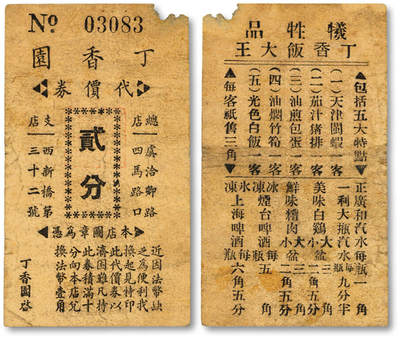 No 03083
丁香園
代價券
總店 虞洽卿路四馬路口
貳分
支店 西新橋第三十二號
本店圖章為憑
近因法幣缺
乏為便利找
換起見特印
此代價券以
濟困難凡持
此券積滿十
分向本店兌
換法幣壹角
丁香園啓
犧牲品
丁香飯大王
▲包括五大特點▼
(一)天津鬪蝦
(二)茄汁豬排
(三)油煎包蛋
(四)油燜竹筍
(五)光色白飯一客
▲每客祇售三角▼
正廣和汽水每瓶一角
一利大瓶汽水每瓶九分半
美味白鷄大小盆三二角五分
鮮味糟肉大小盆三二角五分
冰凍煙台啤酒每瓶五角
冰凍上海啤酒每瓶六角五分